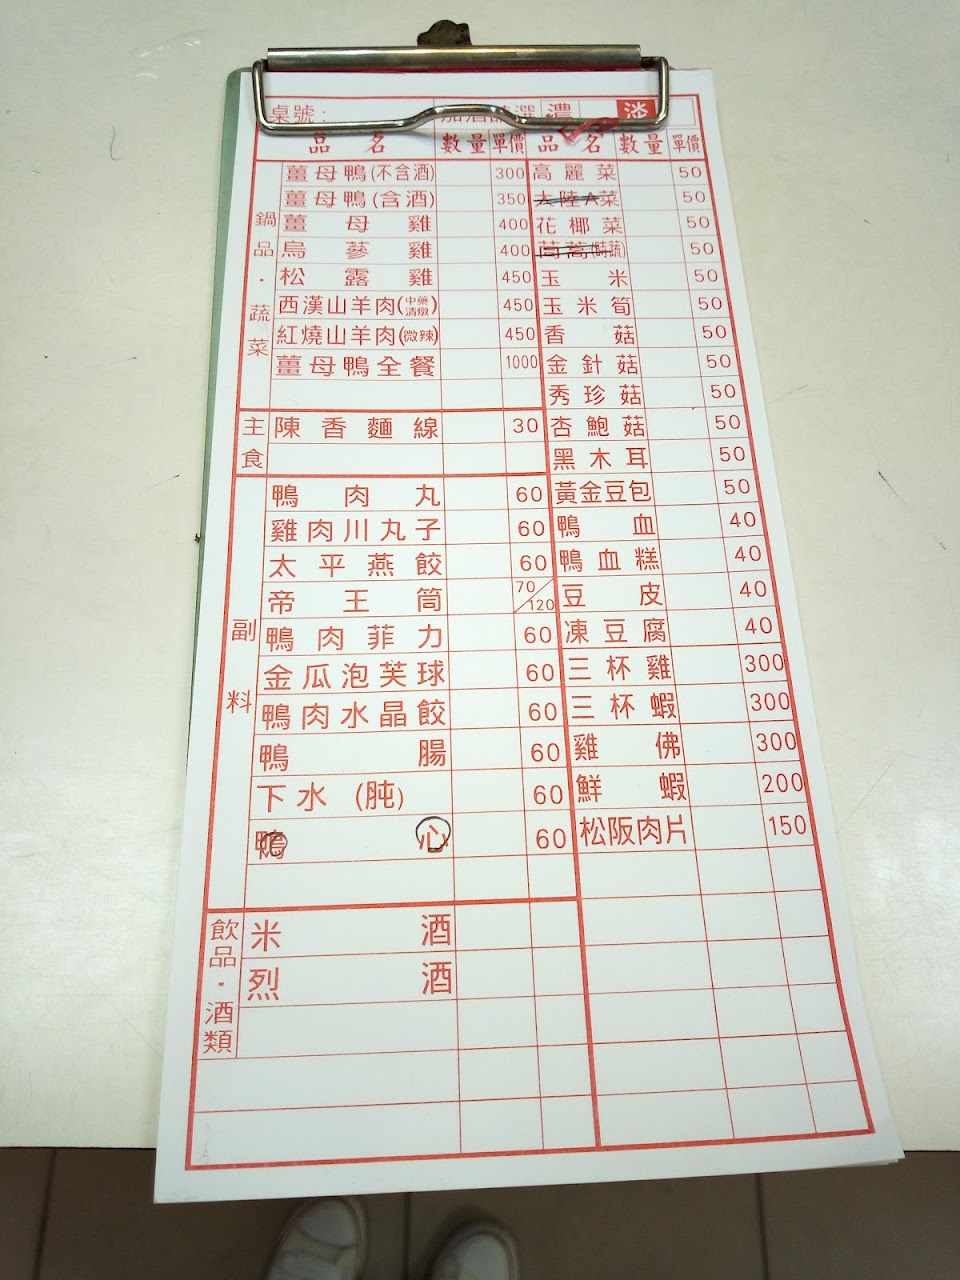 桌號:
加酒請選 濃 淡
品名 數量 單價 品名 數量 單價
鍋品・蔬菜
薑母鴨(不含酒) 300
薑母鴨(含酒) 350
薑母雞 400
烏蔘雞 400
松露雞 450
西漢山羊肉(中藥清燉) 450
紅燒山羊肉(微辣) 450
薑母鴨全餐 1000
主食
陳香麵線 30
副料
鴨肉丸 60
雞肉川丸子 60
太平燕餃 60
帝王筒 70/120
鴨肉菲力 60
金瓜泡芙球 60
鴨肉水晶餃 60
鴨腸 60
下水(肫) 60
鴨心 60
飲品・酒類
米酒
烈酒
高麗菜 50
大陸A菜 50
花椰菜 50
茼蒿(時蔬) 50
玉米 50
玉米筍 50
香菇 50
金針菇 50
秀珍菇 50
杏鮑菇 50
黑木耳 50
黃金豆包 50
鴨血 40
鴨血糕 40
豆皮 40
凍豆腐 40
三杯雞 300
三杯蝦 300
雞佛 300
鮮蝦 200
松阪肉片 150